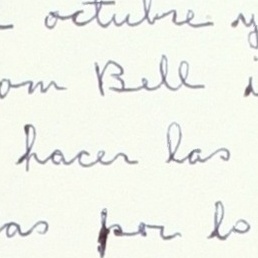 octubre y
om Bell
hacer las
as por lo